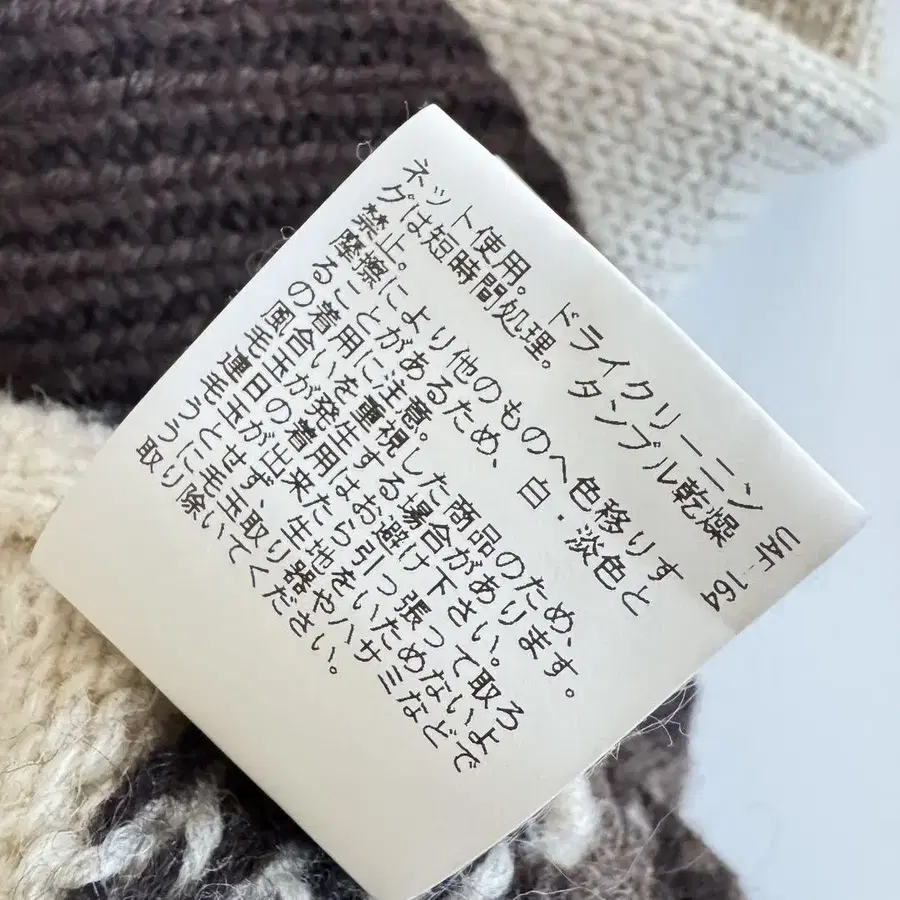 ネット使用。ドライクリーニン
グは短時間処理。タンブル乾燥
禁止。
摩擦により他のものへ色移りす
ることがあるため、白・淡色と
の着用に注意。
風合いを重視した商品のため、
毛玉が発生する場合があります。
連日の着用はお避け下さい。
毛玉が出来たら引っ張って取ろ
うとせず、生地をいためないよ
うに毛玉取り器やハサミなどで
取り除いてください。
UAF-164